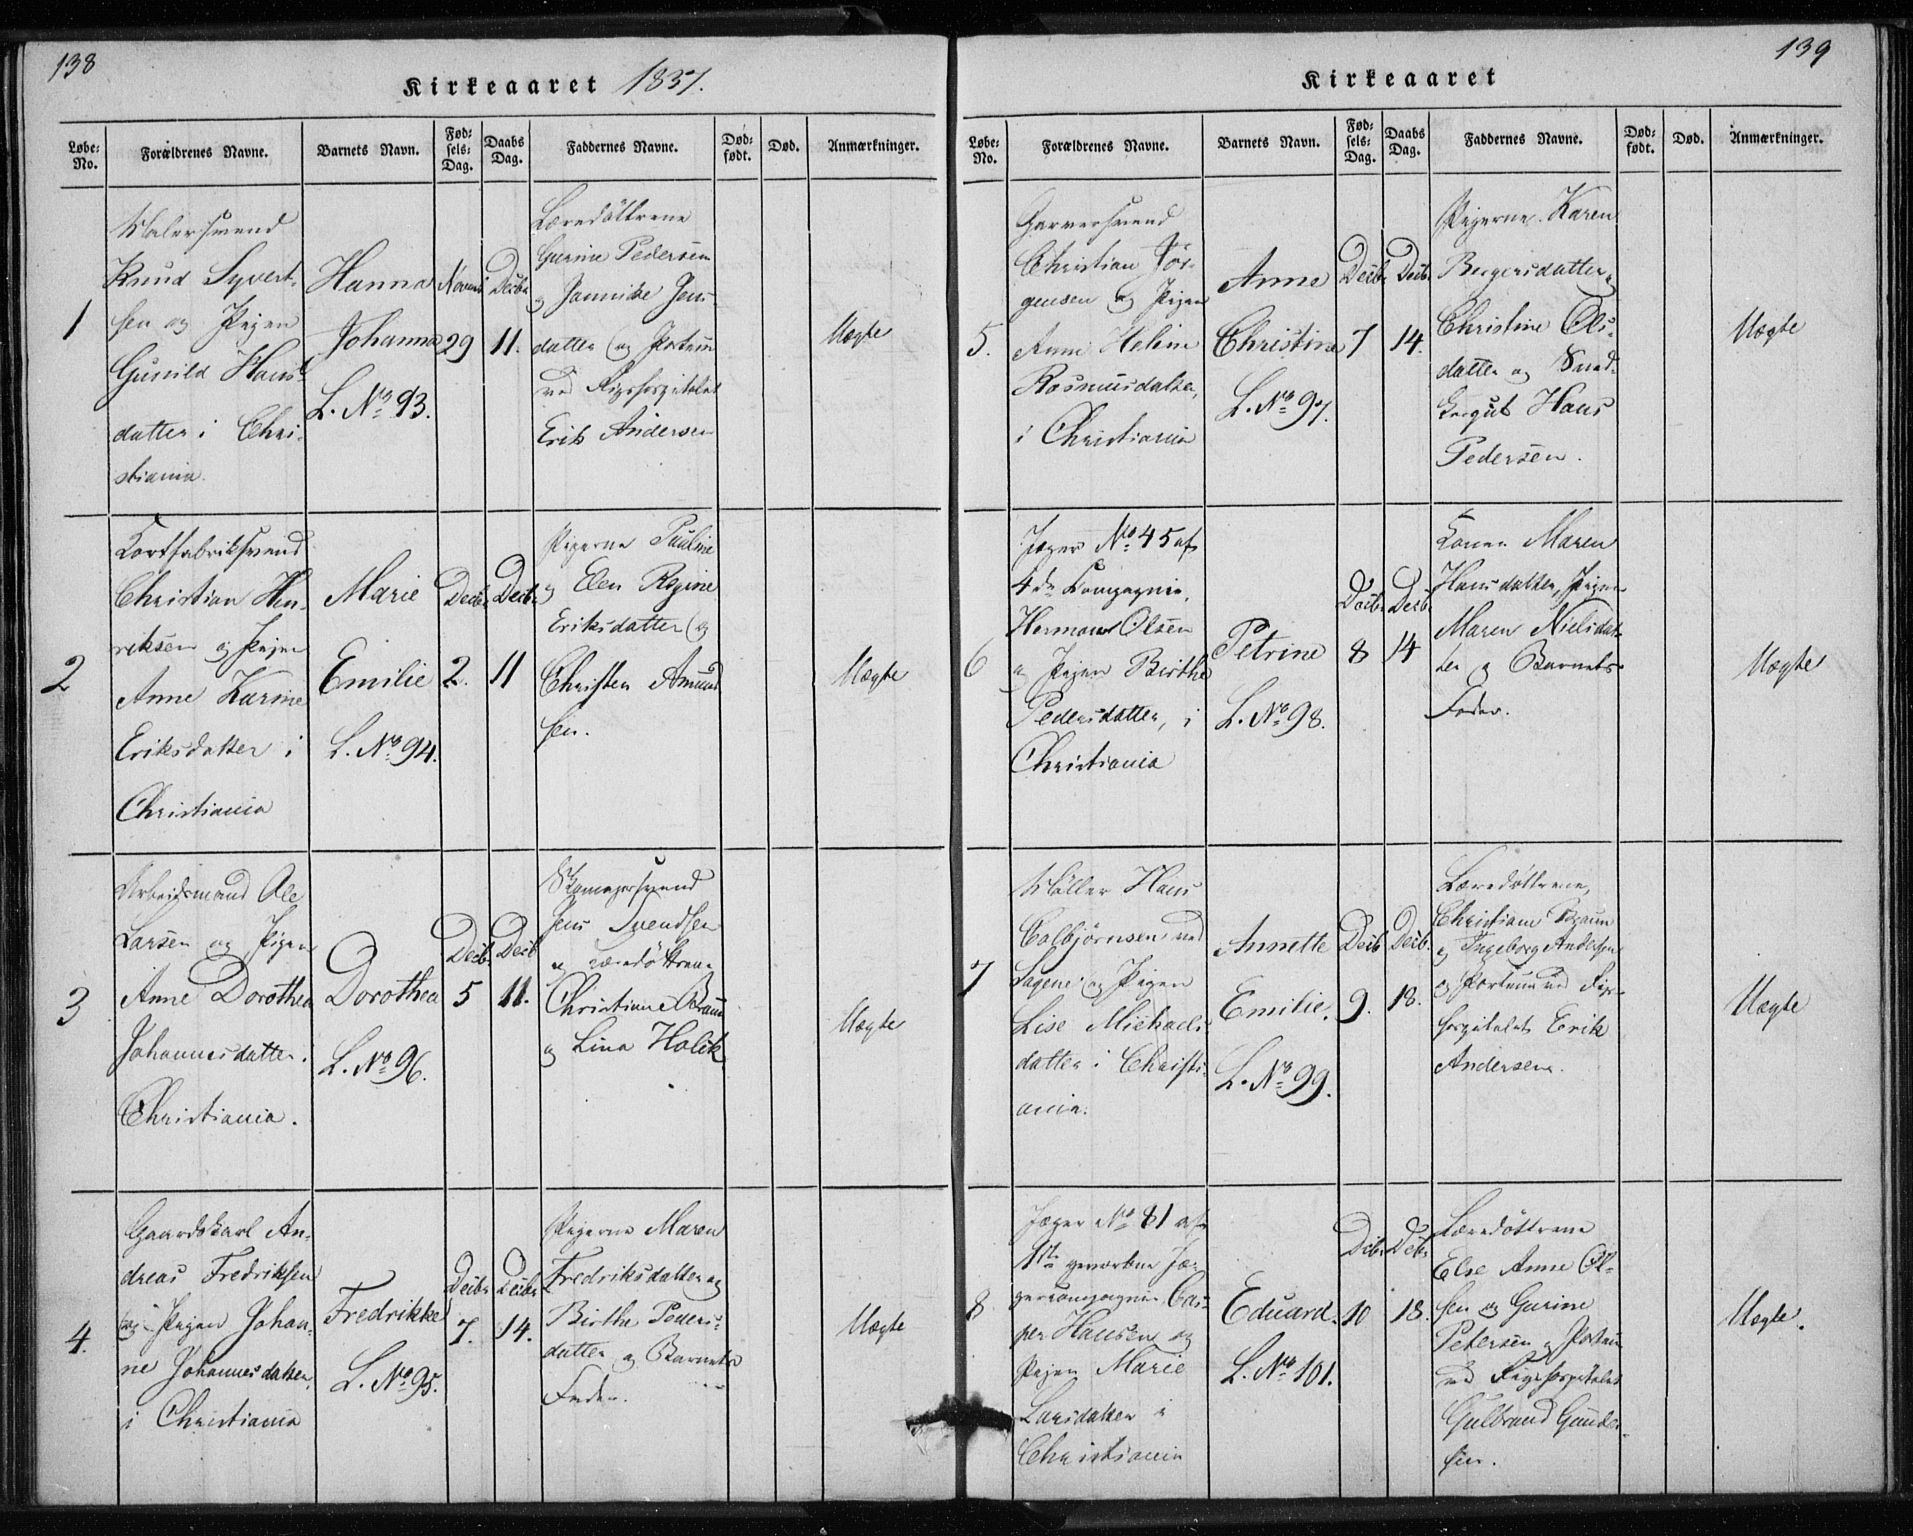 138
Kirkeaaret 1837.
Løbe-No.
Forældrenes Navne.
Barnets Navn.
Fødsels-Dag.
Daabs Dag.
Faddernes Navne.
Dødfødt.
Død.
Anmærkninger.
1
Malersvend
Knud Syvert-
sen og Pigen
Gunild Hans-
datter i Chri-
stiania.
Hanna
Johanna
L. No 93.
Novemb
29
Decbr
11.
Læredöttrene
Gurine Pedersen
og Jannicke Jens-
datter og Portner
ved Rigshospitalet
Erik Andersen
Uægte
2
Kortfabriksvend
Christian Hen-
riksen og Pigen
Anne Karine
Eriksdatter i
Christiania
Marie
Emilie
L. No 94.
Decbr.
2.
Decbr.
11
Pigerne Pauline
og Elen Regine
Eriksdatter og
Christen Amund-
sen.
Uægte
3
Arbeidsmand Ole
Larsen og Pigen
Anne Dorothea
Johannesdatter i
Christiania.
Dorothea
L. No 96.
Decbr.
5
Decb
11.
Skomagersvend
Jens Svendsen
og Læredöttrene
Christiane Braun
og Lina Holck
Uægte
4.
Gaardskarl An-
dreas Fredriksen
og Pigen Johan-
ne Johannesdatter,
i Christiania
Fredrikke
L. No 95.
Decbr
7.
Decbr
14.
Pigerne Maren
Fredriksdatter og
Birthe Peders-
datter og Barnets
Fader.
Uægte
139
Kirkeaaret
Løbe-No.
Forældrenes Navne.
Barnets Navn.
Fødsels-Dag.
Daabs Dag.
Faddernes Navne.
Dødfødt.
Død.
Anmærkninger.
5.
Garversvend
Christian Jør-
gensen og Pigen
Anne Heline
Rasmusdatter,
i Christiania
Anne
Christine
L. No 97.
Decbr.
7
Decb.
14.
Pigerne Karen
Birgersdatter,
Christine Ols-
datter og Smed-
Hans
Pedersen.
Uægte
6
Jæger No 45 af
4de Compagnie,
Herman Olsen
og Pigen Birthe
Pedersdatter, i
Christiania
Petrine
L. No 98.
Decbr.
8
Decb.
14
Konen Maren
Hansdatter, Pigen
Maren Nielsdat-
ter og Barnets
Fader.
Uægte
7
Møller Hans
Colbjørnsen ved
Sagene og Pigen
Lise Michaels-
datter i Christi-
ania.
Annette
Emilie.
L. No 99.
Decb
9.
Decb.
18.
Læredöttrene,
Christiane Braun
og Ingeborg Andersen
og Portneren ved Rigs-
hospitalet Erik
Andersen.
Uægte
8
Jæger No 81 af
1ste geworbne Jæ-
gercompagnie Cas-
per Hansen og
Pigen Marie
Larsdatter i
Christiania
Eduard.
L. No 101.
Decbr
10
Decbr
18.
Læredöttrene
Else Anne Ol-
sen og Gurine
Petersen og Portner
ved Rigshospitalet
Gulbrand Gunder-
sen.
Uægte.